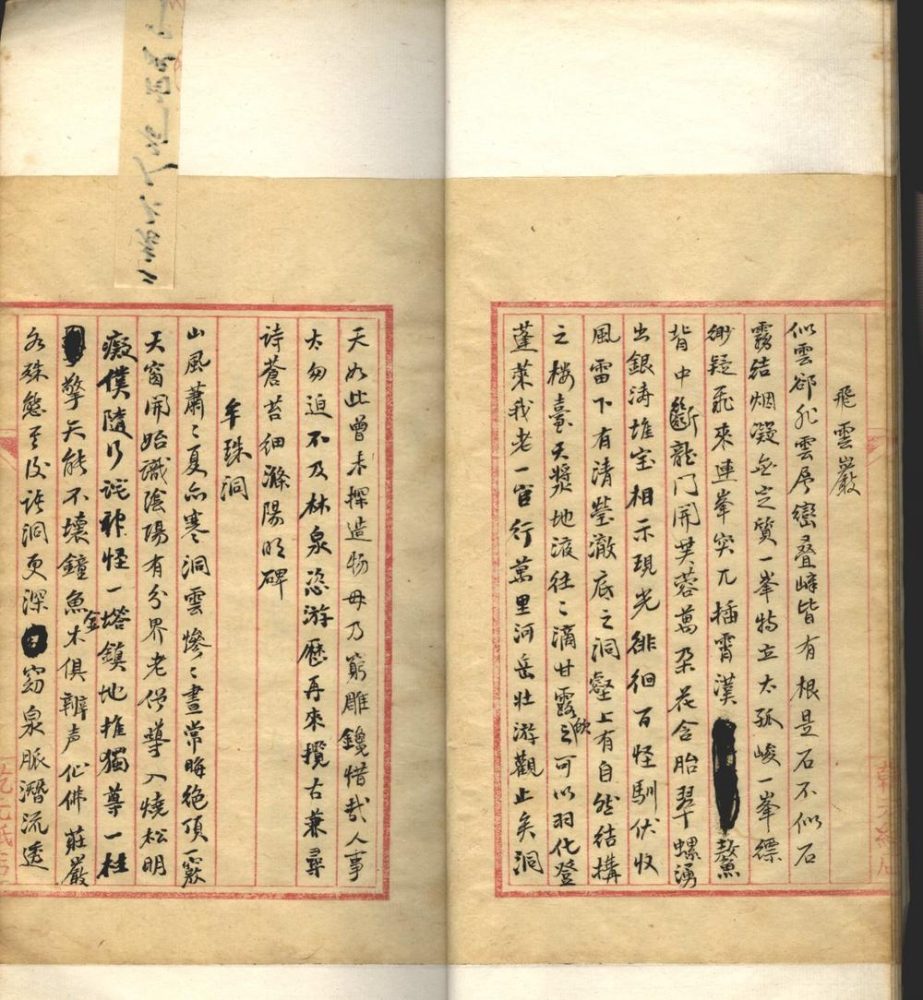 飛雲巖
似雲却非雲層巒叠嶂皆有根是石不似石
霧結烟凝無定質一峯特立太孤峻一峯縹
緲疑飛來連峯突兀插霄漢鰲
背中斷龍門開芙蓉萬朶花含胎翠螺湧
出銀涛堆宝相示現光徘徊百怪馴伏收
風雷下有清瑩澈底之洞壑上有自然结構
之楼臺天漿地液往々滴甘露飲之可以羽化登
蓬莱我老一官行萬里河岳壮游觀止矣洞
天如此曾未探造物毋乃窮雕鑱惜哉人事
太匆迫不及林泉恣游歷再來攬古兼尋
诗蒼苔细滌陽明碑
牟珠洞
山風蕭々夏亦寒洞雲慘々晝常晦绝頂一竅
天窗開始識陰陽有分界老僧導入燒松明
癡僕隨行詫神怪一塔鎮地推獨尊一柱
擎天能不壞鐘魚金木俱辨声仙佛莊嚴
各殊態至後诸洞更深窈泉脈潛流透